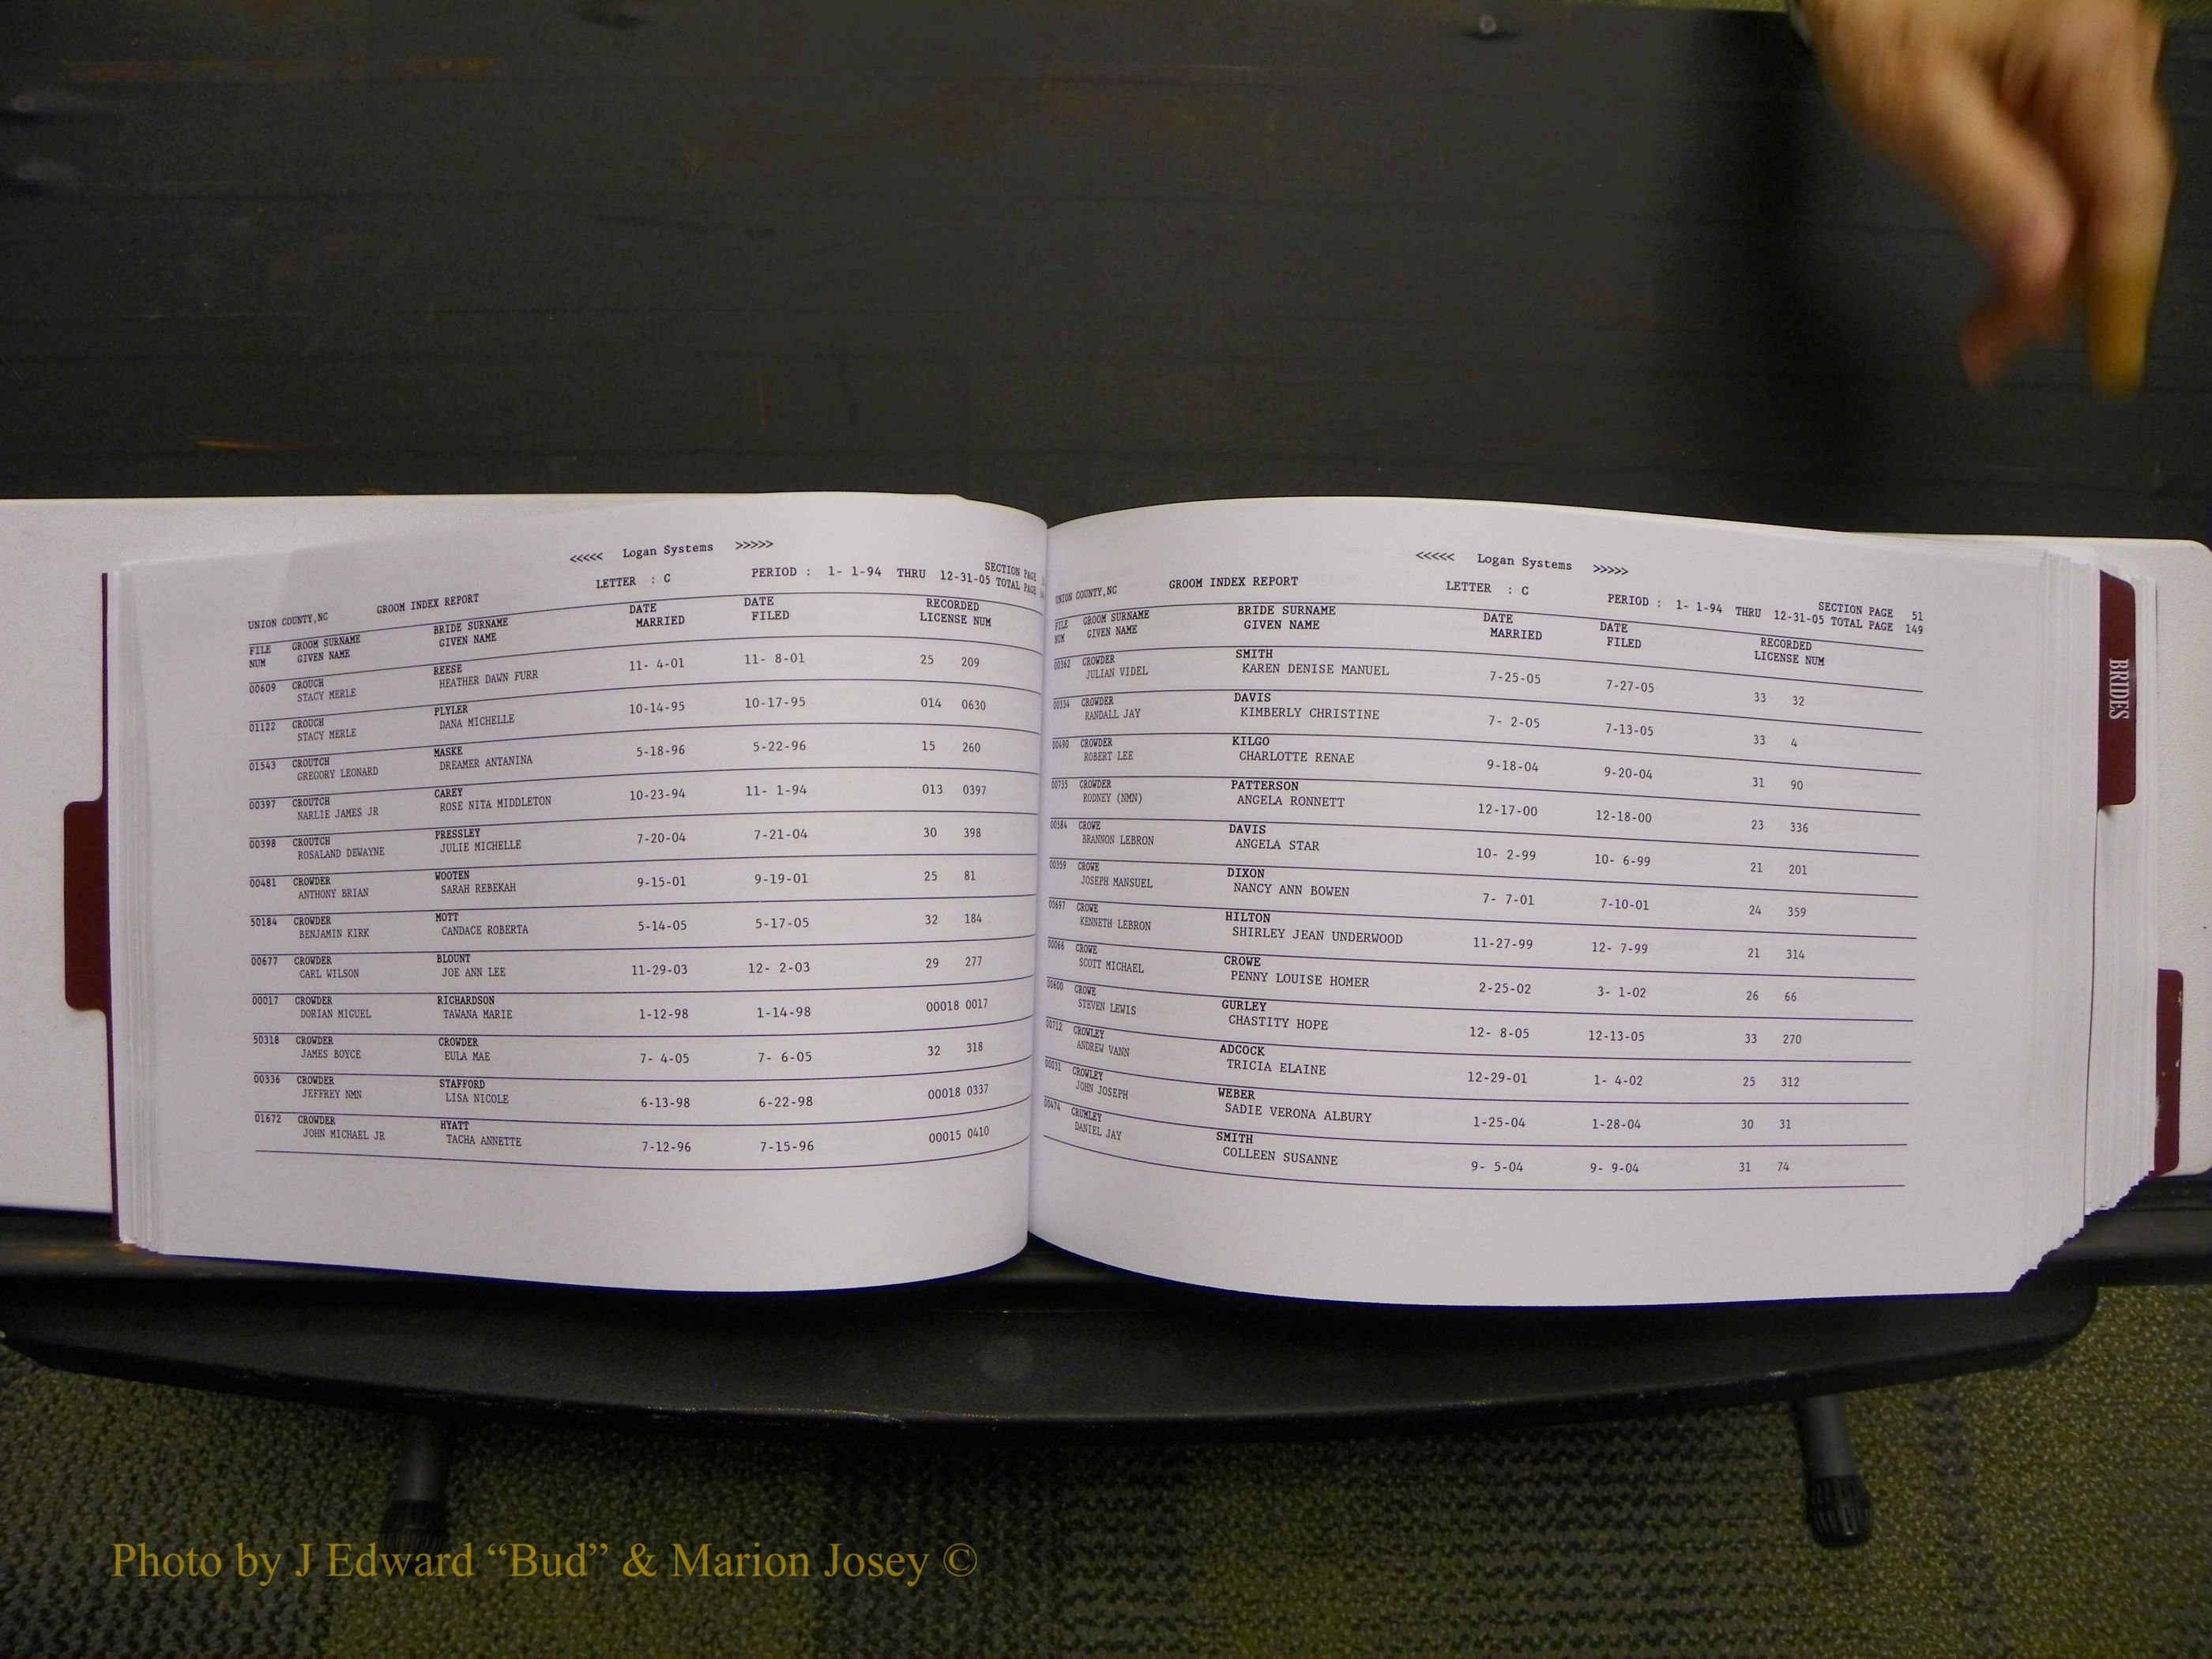 <<<<< Logan Systems >>>>>
UNION COUNTY,NC GROOM INDEX REPORT LETTER : C PERIOD : 1- 1-94 THRU 12-31-05 SECTION PAGE
TOTAL PAGE
FILE GROOM SURNAME BRIDE SURNAME DATE DATE RECORDED
NUM GIVEN NAME GIVEN NAME MARRIED FILED LICENSE NUM
00609 CROUCH REESE 11- 4-01 11- 8-01 25 209
STACY MERLE HEATHER DAWN FURR
01122 CROUCH PLYLER 10-14-95 10-17-95 014 0630
STACY MERLE DANA MICHELLE
01543 CROUTCH MASKE 5-18-96 5-22-96 15 260
GREGORY LEONARD DREAMER ANTANINA
00397 CROUTCH CAREY 10-23-94 11- 1-94 013 0397
NARLIE JAMES JR ROSE NITA MIDDLETON
00398 CROUTCH PRESSLEY 7-20-04 7-21-04 30 398
ROSALAND DEWAYNE JULIE MICHELLE
00481 CROWDER WOOTEN 9-15-01 9-19-01 25 81
ANTHONY BRIAN SARAH REBEKAH
50184 CROWDER MOTT 5-14-05 5-17-05 32 184
BENJAMIN KIRK CANDACE ROBERTA
00677 CROWDER BLOUNT 11-29-03 12- 2-03 29 277
CARL WILSON JOE ANN LEE
00017 CROWDER RICHARDSON 1-12-98 1-14-98 00018 0017
DORIAN MIGUEL TAWANA MARIE
50318 CROWDER CROWDER 7- 4-05 7- 6-05 32 318
JAMES BOYCE EULA MAE
00336 CROWDER STAFFORD 6-13-98 6-22-98 00018 0337
JEFFREY NMN LISA NICOLE
01672 CROWDER HYATT 7-12-96 7-15-96 00015 0410
JOHN MICHAEL JR TACHA ANNETTE
<<<<< Logan Systems >>>>>
UNION COUNTY,NC GROOM INDEX REPORT LETTER : C PERIOD : 1- 1-94 THRU 12-31-05 SECTION PAGE 51
TOTAL PAGE 149
FILE GROOM SURNAME BRIDE SURNAME DATE DATE RECORDED
NUM GIVEN NAME GIVEN NAME MARRIED FILED LICENSE NUM
00362 CROWDER SMITH 7-25-05 7-27-05 33 32
JULIAN VIDEL KAREN DENISE MANUEL
00334 CROWDER DAVIS 7- 2-05 7-13-05 33 4
RANDALL JAY KIMBERLY CHRISTINE
00490 CROWDER KILGO 9-18-04 9-20-04 31 90
ROBERT LEE CHARLOTTE RENAE
00735 CROWDER PATTERSON 12-17-00 12-18-00 23 336
RODNEY (NMN) ANGELA RONNETT
00584 CROWE DAVIS 10- 2-99 10- 6-99 21 201
BRANNON LEBRON ANGELA STAR
00359 CROWE DIXON 7- 7-01 7-10-01 24 359
JOSEPH MANSUEL NANCY ANN BOWEN
00697 CROWE HILTON 11-27-99 12- 7-99 21 314
KENNETH LEBRON SHIRLEY JEAN UNDERWOOD
00066 CROWE CROWE 2-25-02 3- 1-02 26 66
SCOTT MICHAEL PENNY LOUISE HOMER
00600 CROWE GURLEY 12- 8-05 12-13-05 33 270
STEVEN LEWIS CHASTITY HOPE
00712 CROWLEY ADCOCK 12-29-01 1- 4-02 25 312
ANDREW VANN TRICIA ELAINE
00031 CROWLEY WEBER 1-25-04 1-28-04 30 31
JOHN JOSEPH SADIE VERONA ALBURY
00474 CRUMLEY SMITH 9- 5-04 9- 9-04 31 74
DANIEL JAY COLLEEN SUSANNE
BRIDES
Photo by J Edward “Bud” & Marion Josey ©